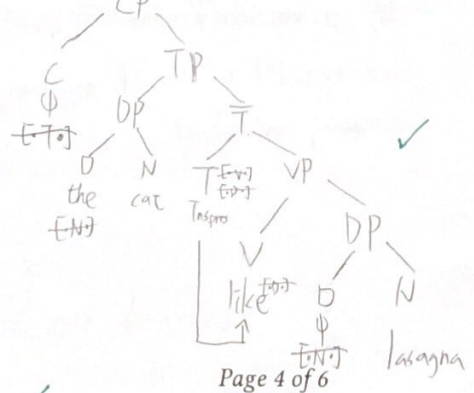 CP
C TP
φ DP T̅
[·T·] D N T [·V·] VP
[·D·]
the cat Tnspro
[·N·] V DP
like [·D·] D N
φ
[·N·] lasagna
Page 4 of 6